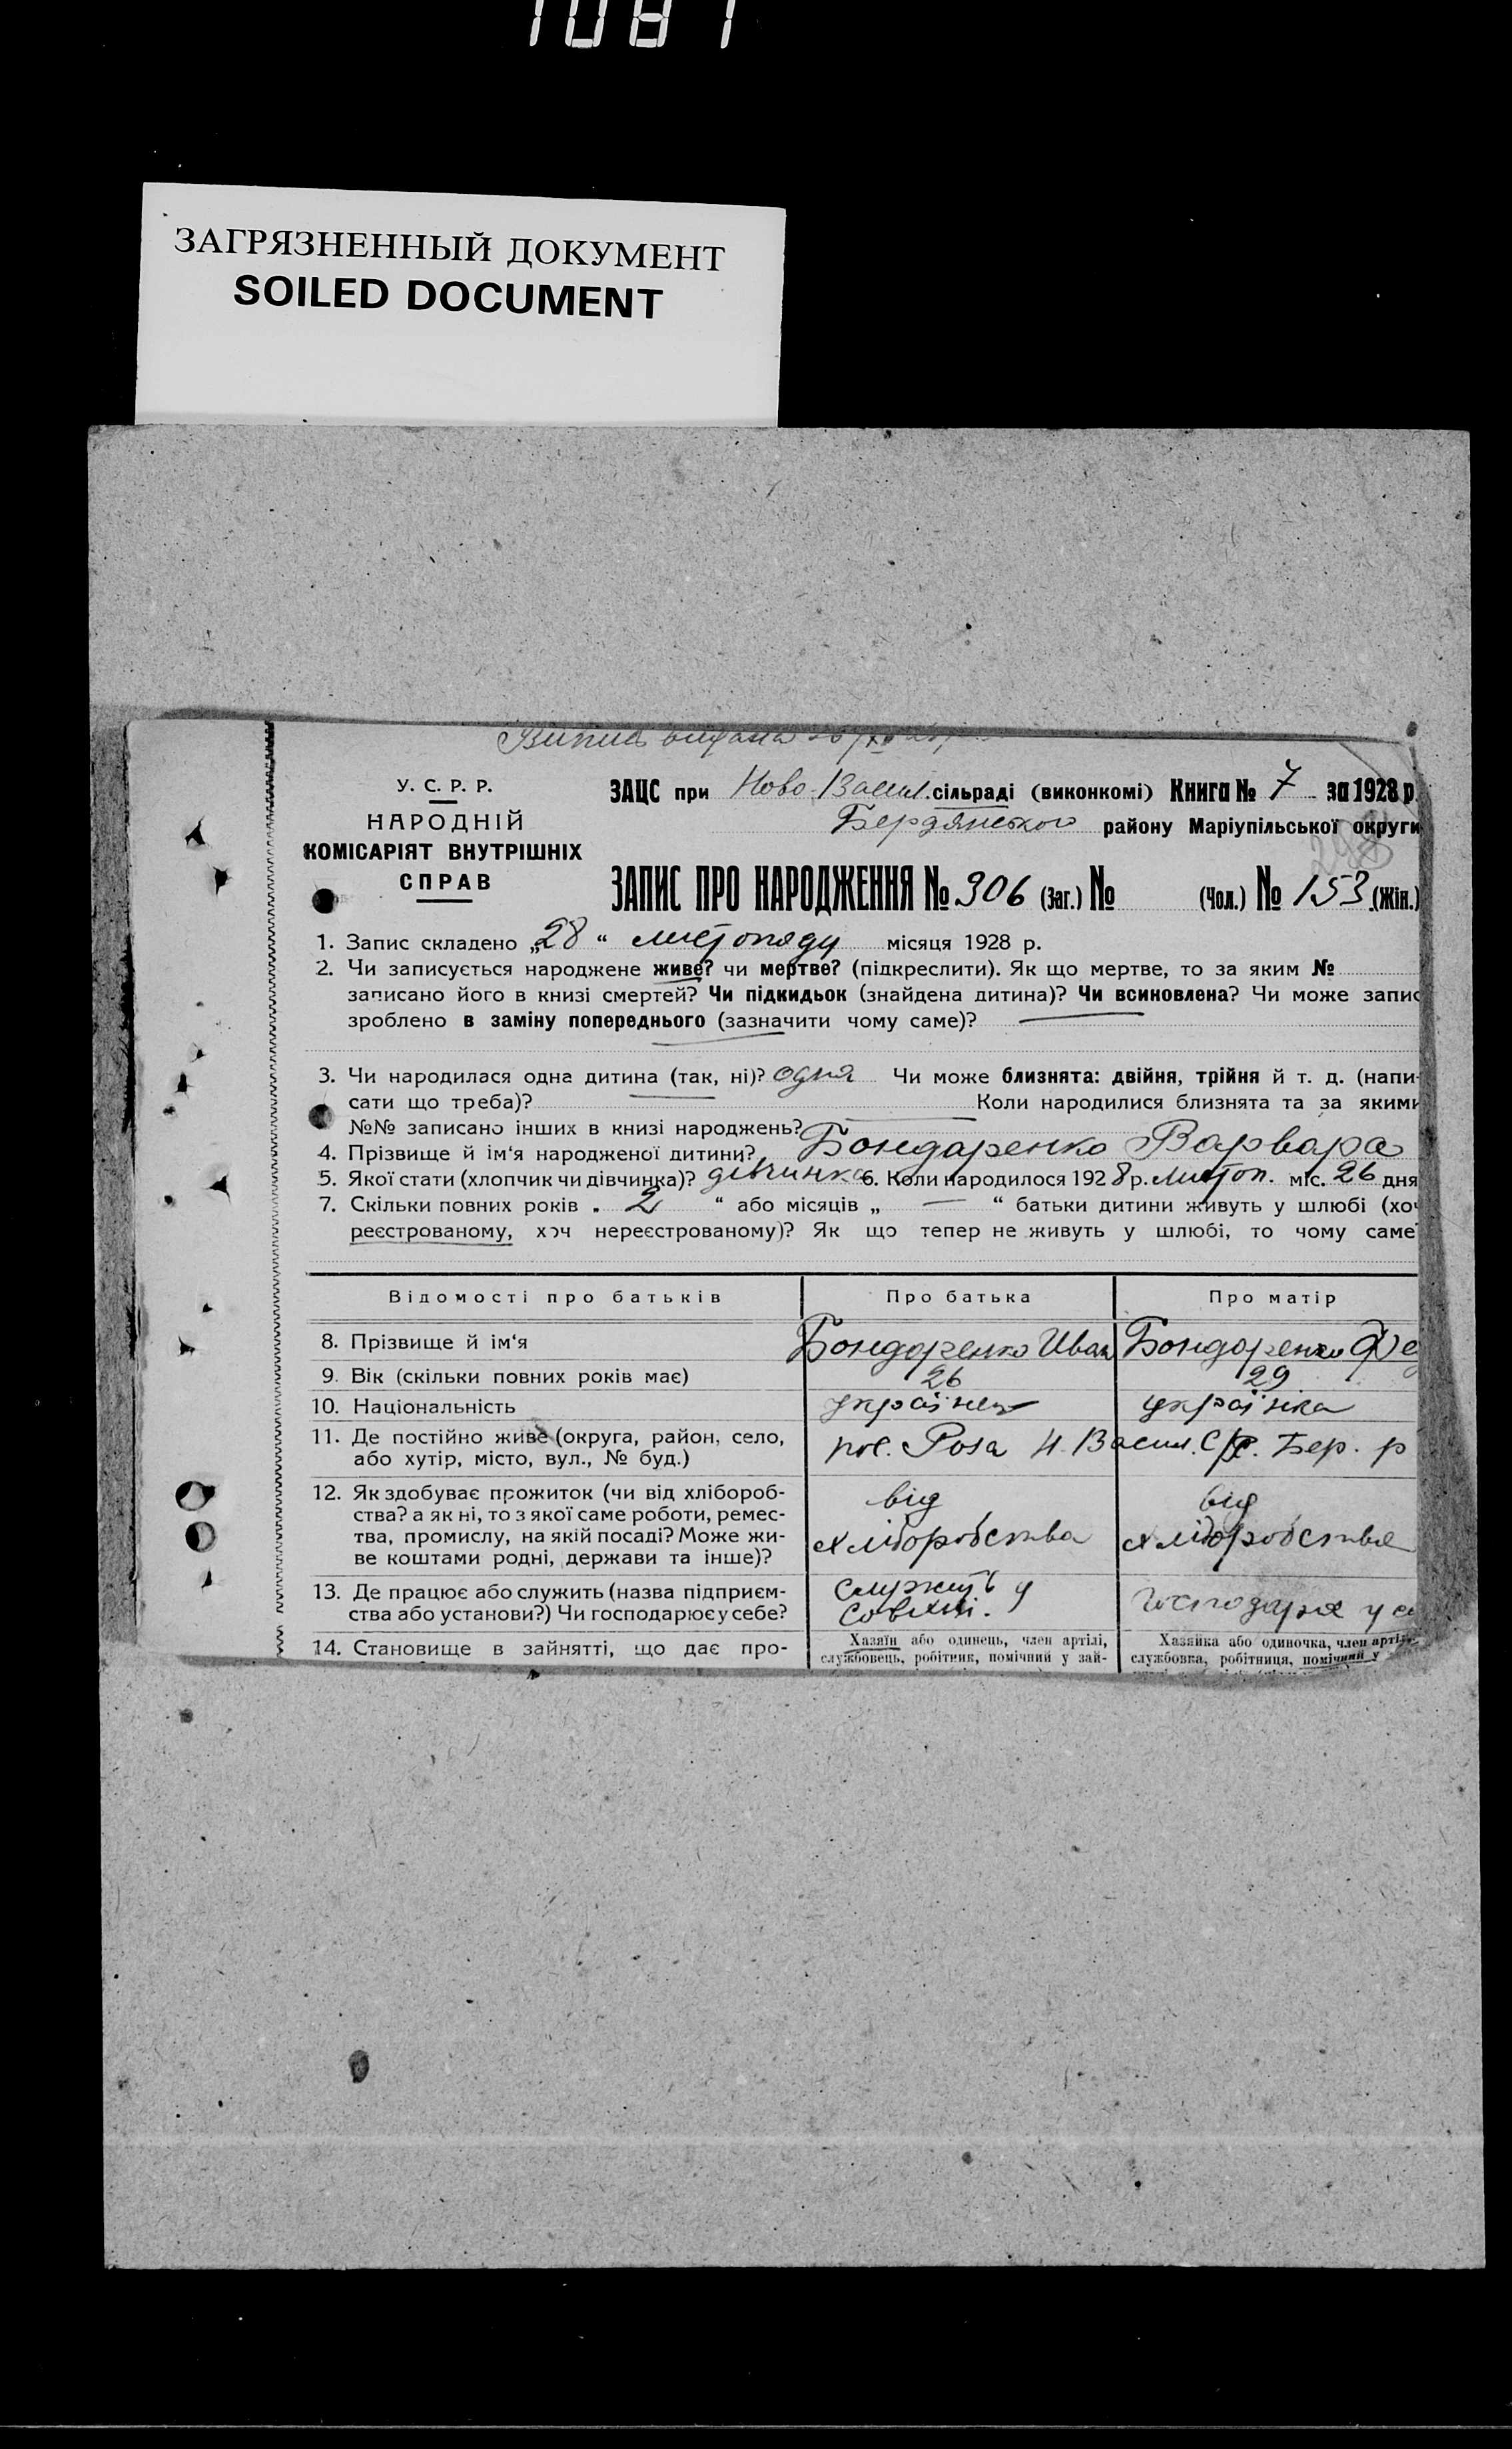 1087
ЗАГРЯЗНЕННЫЙ ДОКУМЕНТ
SOILED DOCUMENT
Випис видана
У. С. Р. Р.
НАРОДНІЙ
КОМІСАРІЯТ ВНУТРІШНІХ
СПРАВ
ЗАЦС при Ново-Васил. сільраді (виконкомі) Книга № 7 за 1928 р.
Бердянського району Маріупільської округи
ЗАПИС ПРО НАРОДЖЕННЯ № 306 (Заг.) № (Чол.) № 153 (Жін.)
1. Запис складено „28“ листопаду місяця 1928 р.
2. Чи записується народжене живе? чи мертве? (підкреслити). Як що мертве, то за яким №
записано його в книзі смертей? Чи підкидьок (знайдена дитина)? Чи всиновлена? Чи може запис
зроблено в заміну попереднього (зазначити чому саме)? —
3. Чи народилася одна дитина (так, ні)? одна Чи може близнята: двійня, трійня й т. д. (напи-
сати що треба)? Коли народилися близнята та за якими
№№ записано інших в книзі народжень?
4. Прізвище й ім‘я народженої дитини? Бондаренко Варвара
5. Якої стати (хлопчик чи дівчинка)? дівчинка 6. Коли народилося 1928 р. листоп. міс. 26 дня
7. Скільки повних років „ 2 “ або місяців „ — “ батьки дитини живуть у шлюбі (хоч
реєстрованому, хоч нереєстрованому)? Як що тепер не живуть у шлюбі, то чому саме?
Відомості про батьків Про батька Про матір
8. Прізвище й ім‘я Бондаренко Иван Бондаренко Фе
9. Вік (скільки повних років має) 26 29
10. Національність українец українка
11. Де постійно живе (округа, район, село,
або хутір, місто, вул., № буд.) пос. Роза Н. Васил. С/р. Бер. р
12. Як здобуває прожиток (чи від хлібороб-
ства? а як ні, то з якої саме роботи, ремес-
тва, промислу, на якій посаді? Може жи-
ве коштами родні, держави та інше)?
від хліборобства
від хліборобства
13. Де працює або служить (назва підприєм-
ства або установи?) Чи господарює у себе?
служить у
Господарює у се
14. Становище в зайнятті, що дає про-
Хазяїн або одинець, член артілі,
службовець, робітник, помічний у зай-
Хазяйка або одиночка, член артілі
службовка, робітниця, помічний у